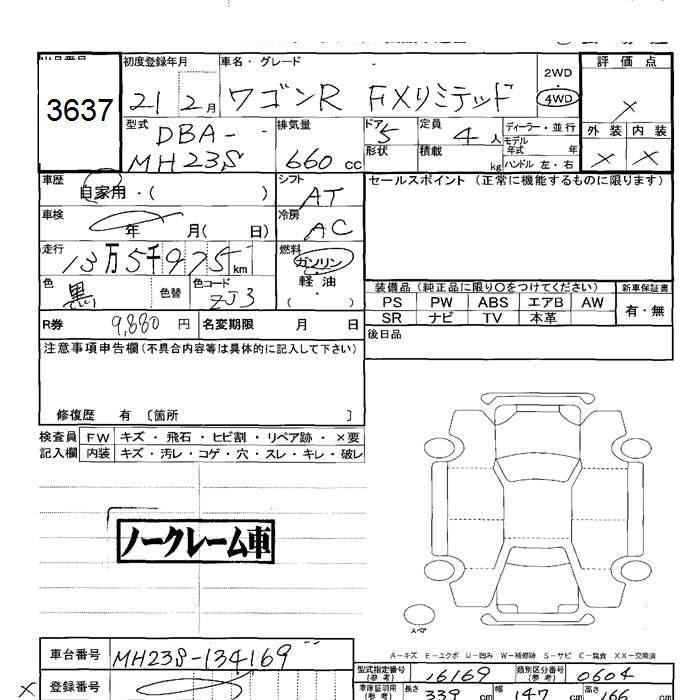 3637
初度登録年月 車名・グレード
21 2月 ワゴンR FXリミテッド
2WD
4WD
評価点
×
外装 内装
× ×
型式 排気量 ドア 定員 ディーラー・並行
DBA-
MH23S 660 cc 5 4人
形状 積載 kg
モデル年式 年
ハンドル 左・右
車歴 自家用・( )
シフト AT
セールスポイント (正常に機能するものに限ります)
車検 年 月( 日)
冷房 AC
走行 13万5千975 km
燃料 ガソリン
軽・油
( ・ )
色 黒 色替 色コード ZJ3
装備品 (純正品に限り○をつけてください) 新車保証書
PS PW ABS エアB AW
SR ナビ TV 本革
有・無
R券 9,880 円 名変期限 月 日
後日品
注意事項申告欄(不具合内容等は具体的に記入して下さい)
修復歴 有 〔箇所 〕
検査員 FW キズ・飛石・ヒビ割・リペア跡・×要
記入欄 内装 キズ・汚レ・コゲ・穴・スレ・キレ・破レ
ノークレーム車
スペア
A-キズ E-エクボ U-凹み W-補修跡 S-サビ C-腐食 XX-交換済
車台番号 MH23S-134169
型式指定番号(参考) 16169 類別区分番号(参考) 0604
× 登録番号
車庫証明用(参考) 長さ 339 cm 幅 147 cm 高さ 166 cm